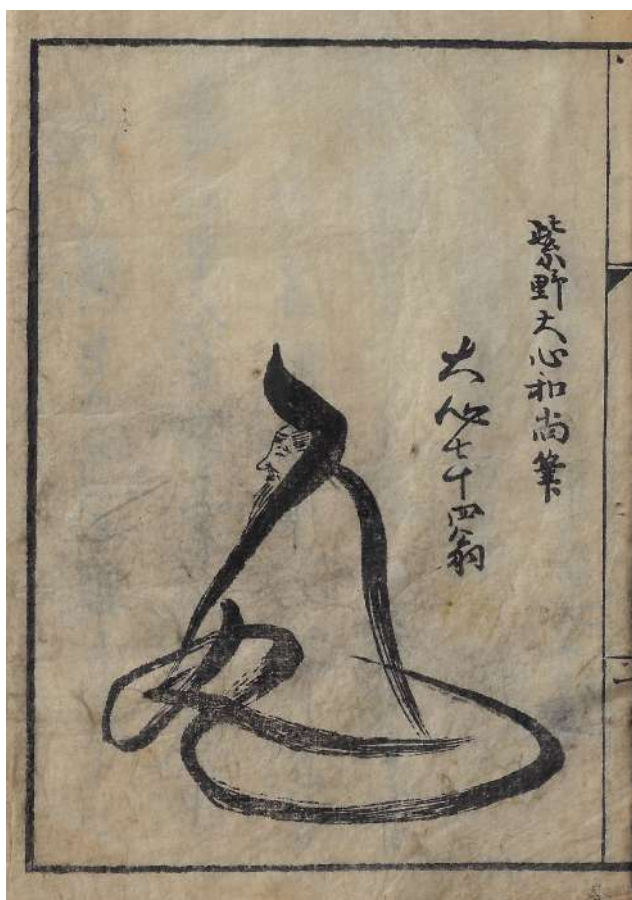 二
紫野大心和尚筆
大心七十四翁
人丸